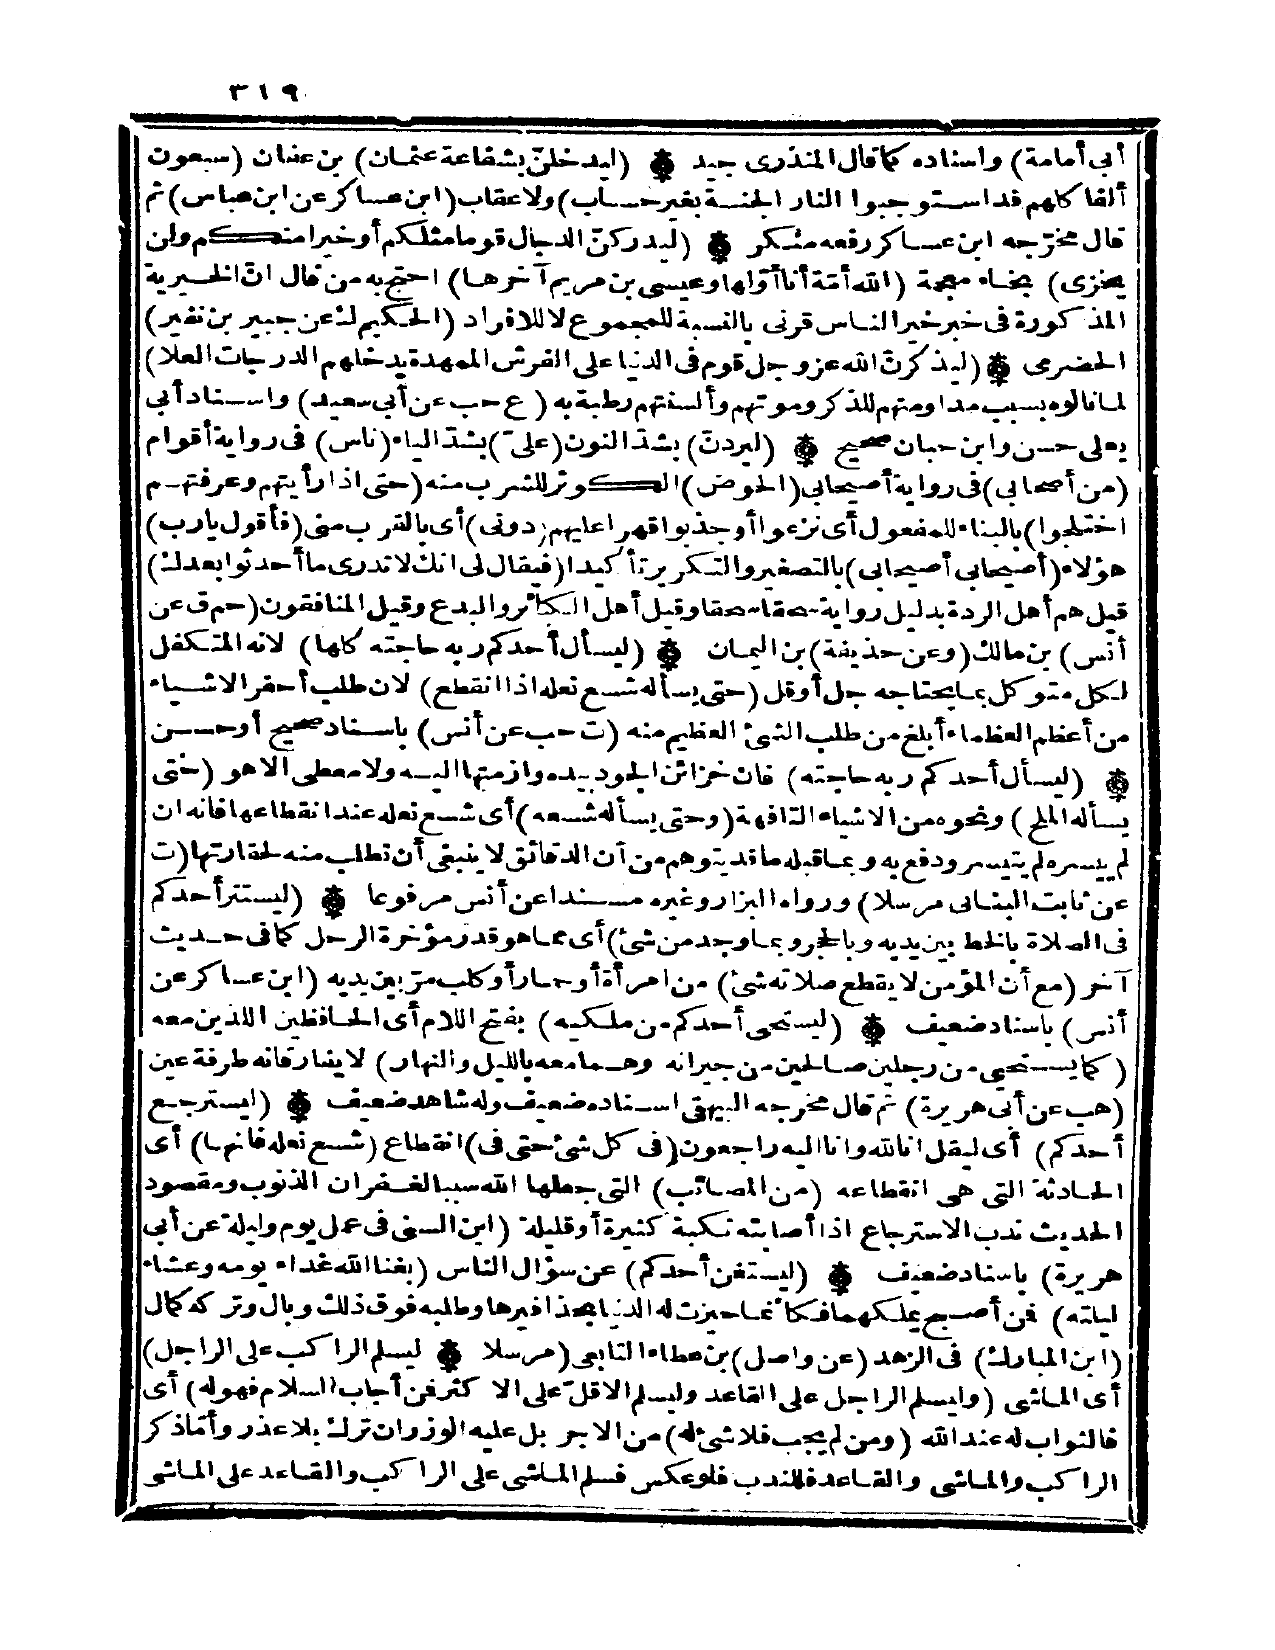 ٣١٩
أبى أمامة) واسناده كما قال المنذرى جيد ۞ (ليدخلنّ بشفاعة عثمان) بن عفان (سبعون
ألفا كلهم قد استوجبوا النار الجنة بغير حساب) ولا عقاب (ابن عساكر عن ابن عباس) ثم
قال مخرّجه ابن عساكر رفعه منكر ۞ (ليدركنّ الدجال قوما مثلكم أو خيرا منكم ولن
يخزى) بخاء معجمة (الله أمّة أنا أوّلها وعيسى بن مريم آخرها) احتج به من قال انّ الخيرية
المذكورة فى خبر خير الناس قرنى بالنسبة للمجموع لا للافراد (الحكيم ك عن جبير بن نفير)
الحضرمى ۞ (ليذكرنّ الله عز وجل قوم فى الدنيا على الفرش الممهدة يدخلهم الدرجات العلا)
لما نالوه بسبب مداومتهم للذكر وموتهم وألسنتهم رطبة به (ع حب عن أبى سعيد) واسناد أبى
يعلى حسن وابن حبان صحيح ۞ (ليردنّ) بشدّ النون (علىّ) بشدّ الياء (ناس) فى رواية أقوام
(من أصحابى) فى رواية أصيحابى (الحوض) الكوثر للشرب منه (حتى اذا رأيتهم وعرفتهم
اختلجوا) بالبناء للمفعول أى نزعوا أو جذبوا قهرا عليهم (دونى) أى بالقرب منى (فأقول يا رب)
هؤلاء (أصيحابى أصيحابى) بالتصغير والتكرير تأكيدا (فيقال لى انك لا تدرى ما أحدثوا بعدك)
قيل هم أهل الردة بدليل رواية سحقا سحقا وقيل أهل الكائر والبدع وقيل المنافقون (حم ق عن
أنس) بن مالك (وعن حذيفة) بن اليمان ۞ (ليسأل أحدكم ربه حاجته كلها) لانه المتكفل
لكل متوكل بما يحتاجه جل أو قل (حتى يسأله شسع نعله اذا انقطع) لان طلب أحقر الاشياء
من أعظم العظماء أبلغ من طلب الشئ العظيم منه (ت حب عن أنس) باسناد صحيح أو حسن
۞ (ليسأل أحدكم ربه حاجته) فان خزائن الجود بيده وازمتها اليه ولا معطى الا هو (حتى
يسأله الملح) ونحوه من الاشياء التافهة (وحتى يسأله شسعه) أى شسع نعله عند انقطاعها فانه ان
لم ييسره لم يتيسر ودفع به وبما قبله ما قد يتوهم من أن الدقائق لا ينبغى أن تطلب منه لحقارتها (ت
عن ثابت البنانى مرسلا) ورواه البزار وغيره مسندا عن أنس مرفوعا ۞ (ليستتر أحدكم
فى الصلاة بالخط بين يديه وبالحجر وبما وجد من شئ) أى مما هو قدر مؤخرة الرحل كما فى حديث
آخر (مع أن المؤمن لا يقطع صلاته شئ) من امرأة أو حمار أو كلب مرّ بين يديه (ابن عساكر عن
أنس) باسناد ضعيف ۞ (ليستحى أحدكم من ملكيه) بفتح اللام أى الحافظين اللذين معه
(كما يستحى من رجلين صالحين من جيرانه وهما معه بالليل والنهار) لا يفارقانه طرفة عين
(هب عن أبى هريرة) ثم قال مخرجه البيهقى اسناده ضعيف وله شاهد ضعيف ۞ (ليسترجع
أحدكم) أى ليقل انا لله وانا اليه راجعون (فى كل شئ حتى فى) انقطاع (شسع نعله فانها) أى
الحادثة التى هى انقطاعه (من المصائب) التى جعلها الله سببا لغفران الذنوب ومقصود
الحديث ندب الاسترجاع اذا أصابته نكبة كثيرة أو قليلة (ابن السنى فى عمل يوم وليلة عن أبى
هريرة) باسناد ضعيف ۞ (ليستغن أحدكم) عن سؤال الناس (بغنا الله غداء يومه وعشاء
ليلته) فمن أصبح يملكهما فكأنما حيزت له الدنيا بحذافيرها وطلبه فوق ذلك وبال وتركه كمال
(ابن المبارك) فى الزهد (عن واصل) بن عطاء التابعى (مرسلا ۞ ليسلم الراكب على الراجل)
أى الماشى (وليسلم الراجل على القاعد وليسلم الاقلّ على الاكثر فمن أجاب السلام فهو له) أى
فالثواب له عند الله (ومن لم يجب فلا شئ له) من الاجر بل عليه الوزر ان ترك بلا عذر وأمّا ذكر
الراكب والماشى والقاعد فللندب فلو عكس فسلم الماشى على الراكب والقاعد على الماشى